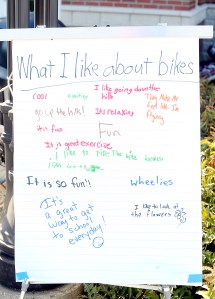 What I like about bikes
cool
I like going down the
hills
They Make Me
Feel like Im
Flying
go up the hill!
It's relaxing
it's fun
Fun
It is good exercise
I like to ride the bike
It is so fun!!
wheelies
It's
a great
way to get
to school
everyday!
I like to look at
the flowers